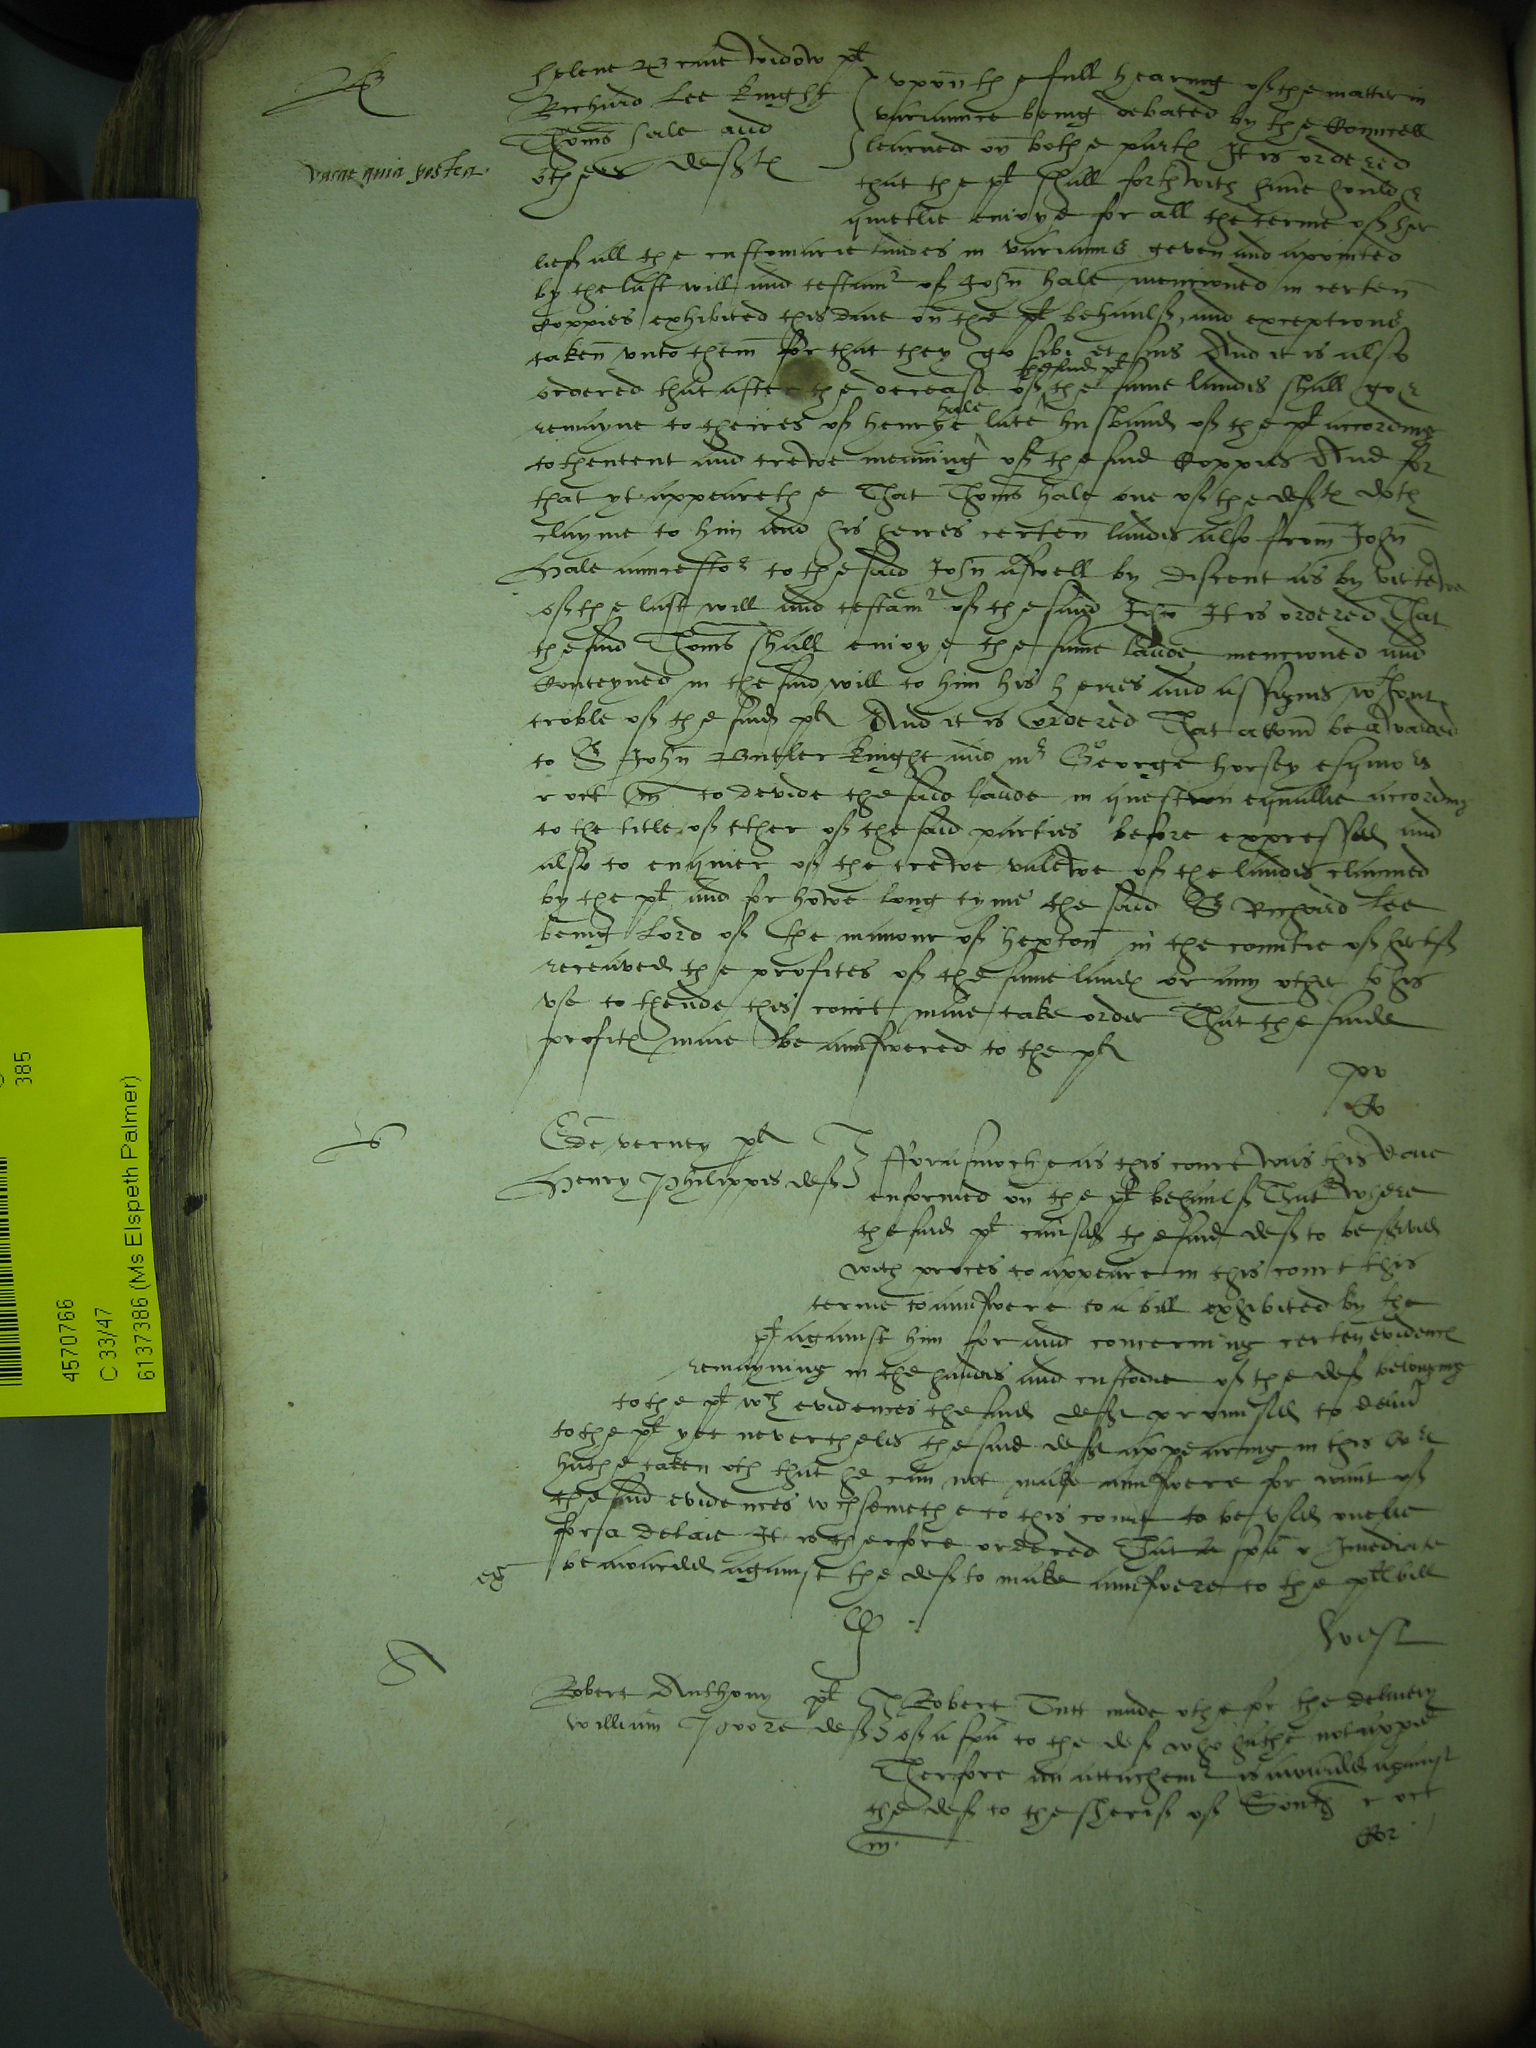 helene widow plt
Richard Lee knight
Thoms hale and
others deftes
vacat quia postea
upon the full hearing of the matter in
variaunce being debated by the Councell
learned on bothe partes It is ordered
that the plt shall forthwith have hould &
quietlie enioye for all the terme of her
lief all the customarie landes in variaunce geven and apointed
by the last will and testamt of John hale mencioned in certen
Coppies exhibited this daie on the plt behaulf, and exceptions
taken unto them for that they go sibi et suis And it is also
ordered that after the decease of the said plt the same landes shall go &
remayne to theires of henrye hale late husband of the plt according
to thentent and trewe meaning of the said Coppies And for
that yt appearethe That Thoms hale one of the deftes doth
clayme to him and his heires certen landes also from John
Hale auncestor to the said John aswell by discent as by vertewe
of the last will and testamt of the said John It is ordered That
the said Thoms shall enioye the same lande mencioned and
Conteyned in the said will to him his heires and assignes wthout
troble of the said plt And it is ordered That a Com be awarded
to Sr John Butler knight and mr George horsey esquiors
r oct m to devide the said lande in question equallie according
to the title of ether of the said parties before expressed and
also to enquier of the trewe valewe of the landes claimed
by the plt and for howe long tyme the said Sr Richard Lee
being Lord of the manour of hexton in the countie of hertf
receaved the profites of the same landes or any other to his
use to thende this court maie take order That the saide
profites maie be aunswered to the plt
po
Co
Ed verney plt
Henry Philippes deft
fforasmoche as this court was this daie
enformed on the plt behaulf That where
the said plt caused the said deft to be served
with proces to appeare in this court this
terme to aunswere to a bill exhibited by the
plt against him for and concerning certen evidences
remayning in the handes and custodie of the deft belonging
to the plt wch evidences the said deft promised to delivr
to the plt yet neverthelis the said deft appearing in this
hathe taken oth that he can not make aunswere for want of
the said evidences wch semethe to this court to be used onelie
for a delaie It is therfore ordered That a spa r Imediate
be awarded against the deft to make aunswere to the plts bill
West
Robert Anthony plt
William deft
Robert Tutt made othe for the delivery
of a spa to the deft who hathe not apped
Therfore an attachemt is awarded against
the deft to the sherif of South r oct
m.
Cor
385
4570766
C 33/47
6137386 (Ms Elspeth Palmer)